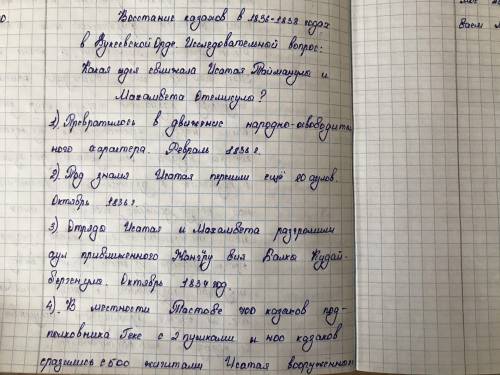 Восстание казахов в 1836-1838 годах
в Букеевской Орде. Исследовательной вопрос:
Какая идея сближала Исатая Тайманулы и
Махамбета Отемисулы?
1). Превратилось в движение народно-освободите
ного характера. Февраль 1836 г.
2). Под знамя Исатая перешли ещё 20 аулов.
Октябрь 1836 г.
3) Отряды Исатая и Махамбета разгромили
аул приближенного Жангiру бия Балкы Кудай-
бергенула. Октябрь 1837 год.
4). В местности Тастобе 400 казаков под-
полковника Гекс с 2 пушками и 400 казахов
сразились с 500 жигитами Исатая вооруженного